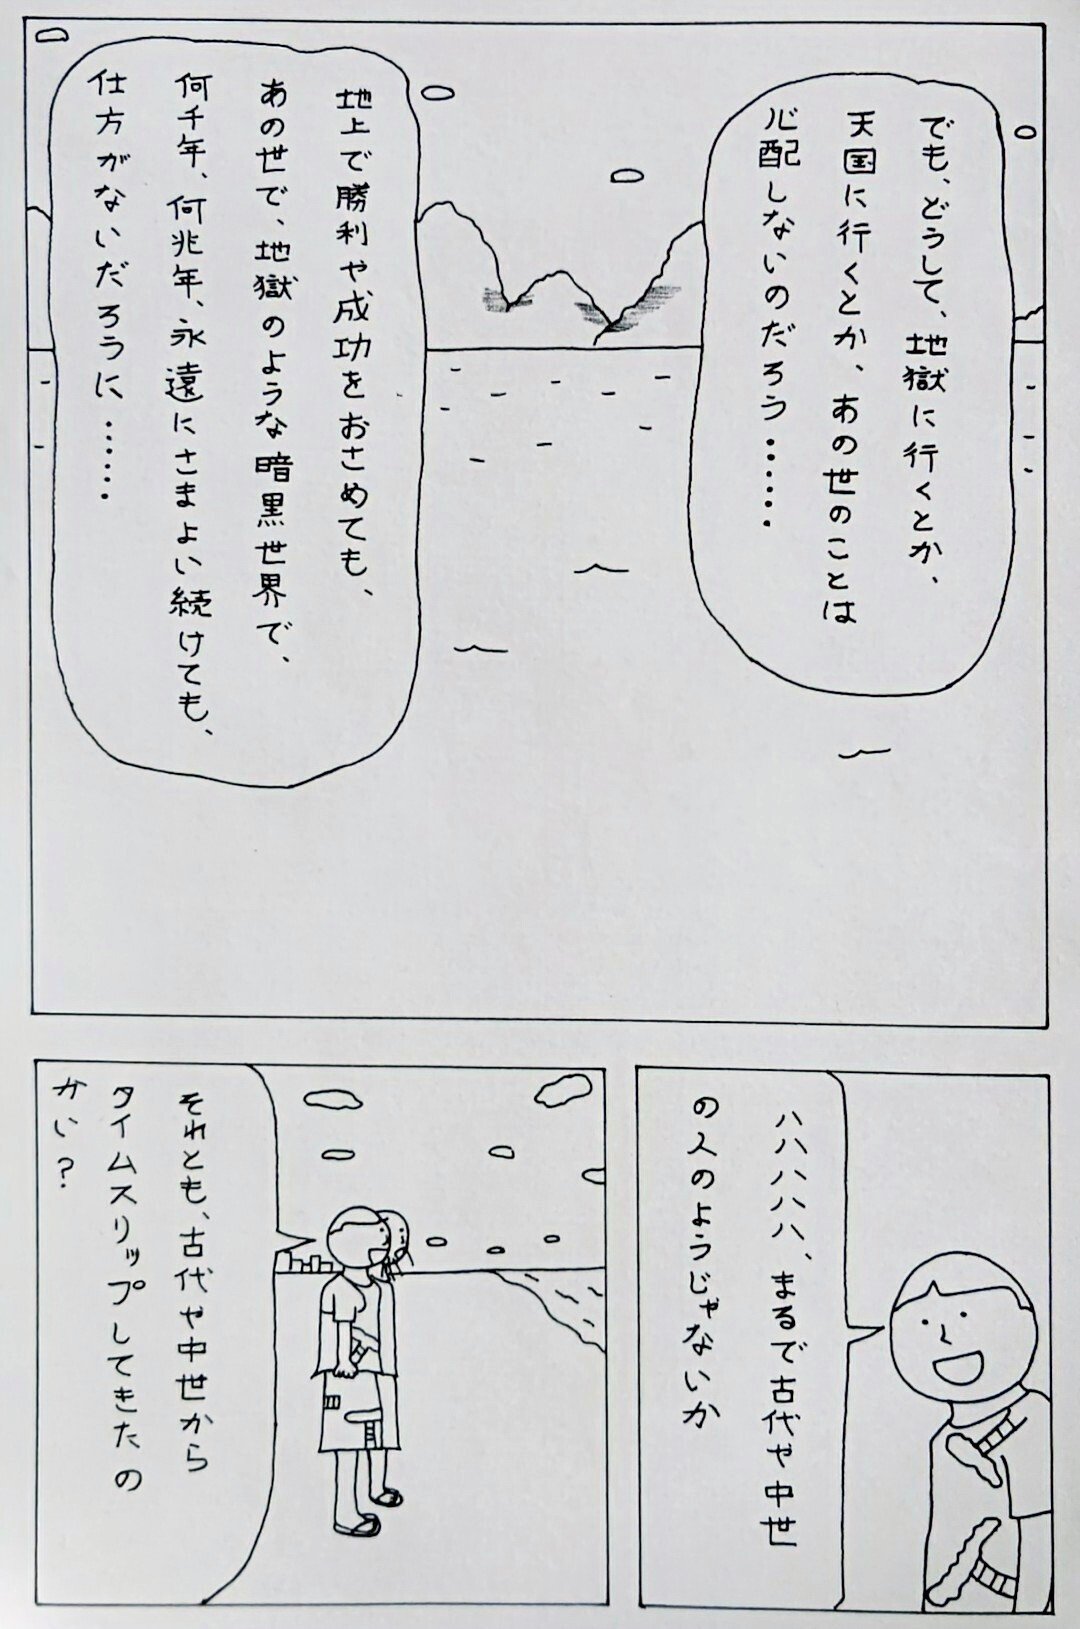 でも、どうして、地獄に行くとか、
天国に行くとか、あの世のことは
心配しないのだろう……
地上で勝利や成功をおさめても、
あの世で、地獄のような暗黒世界で、
何千年、何兆年、永遠にさまよい続けても、
仕方がないだろうに……
ハハハハハ、まるで古代や中世
の人のようじゃないか
それとも、古代や中世から
タイムスリップしてきたの
かい?